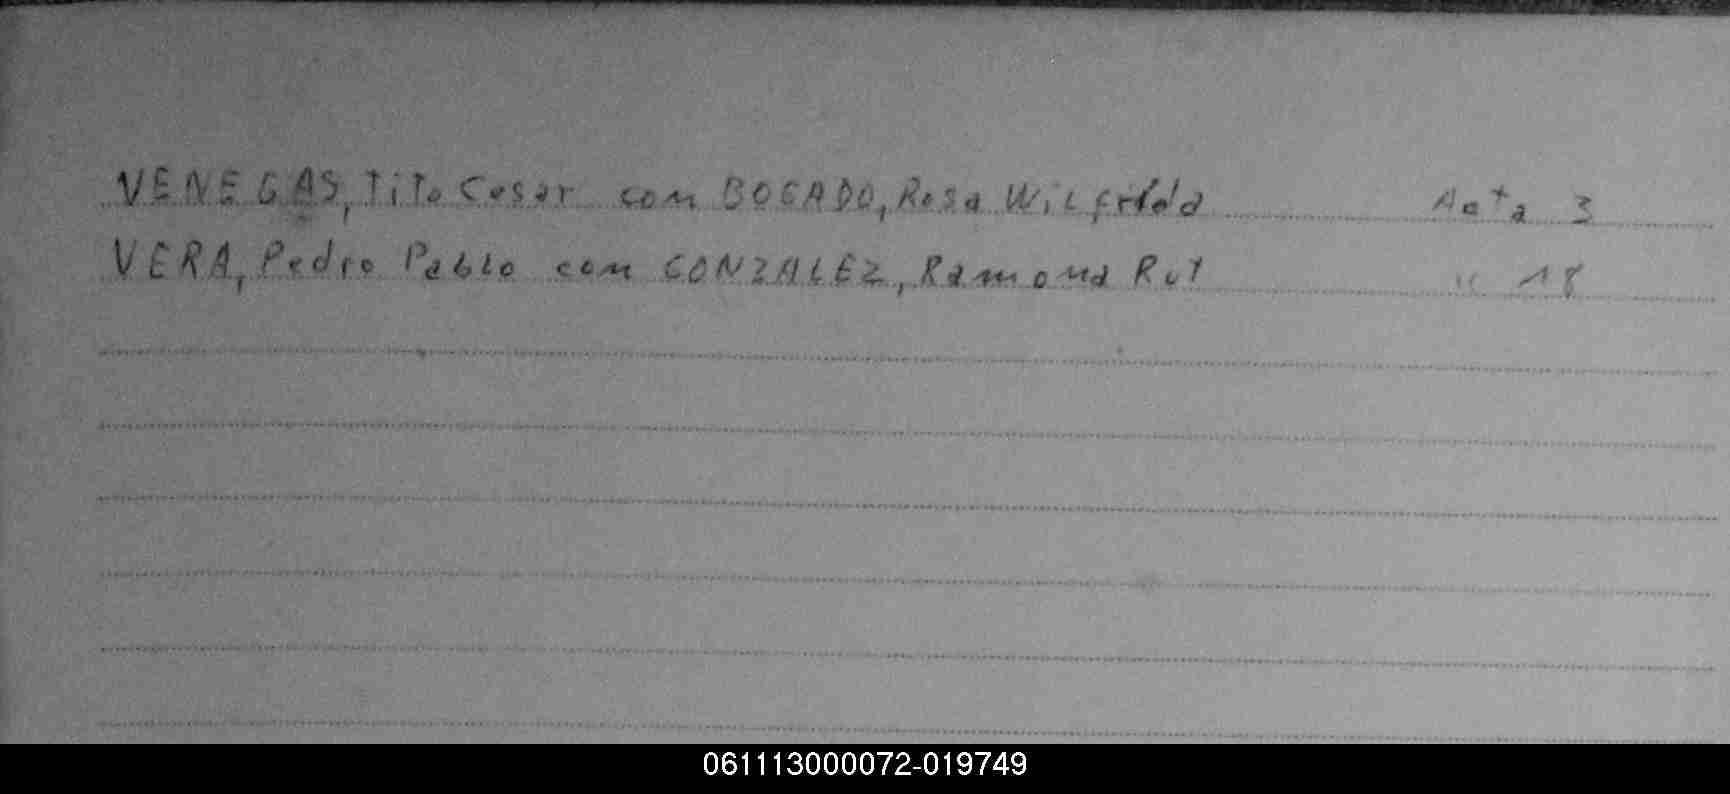 VENEGAS, Tito Cesar com BOGADO, Rosa Wilfrida Acta 3
VERA, Pedro Pablo com GONZALEZ, Ramona Rut " 18
061113000072-019749